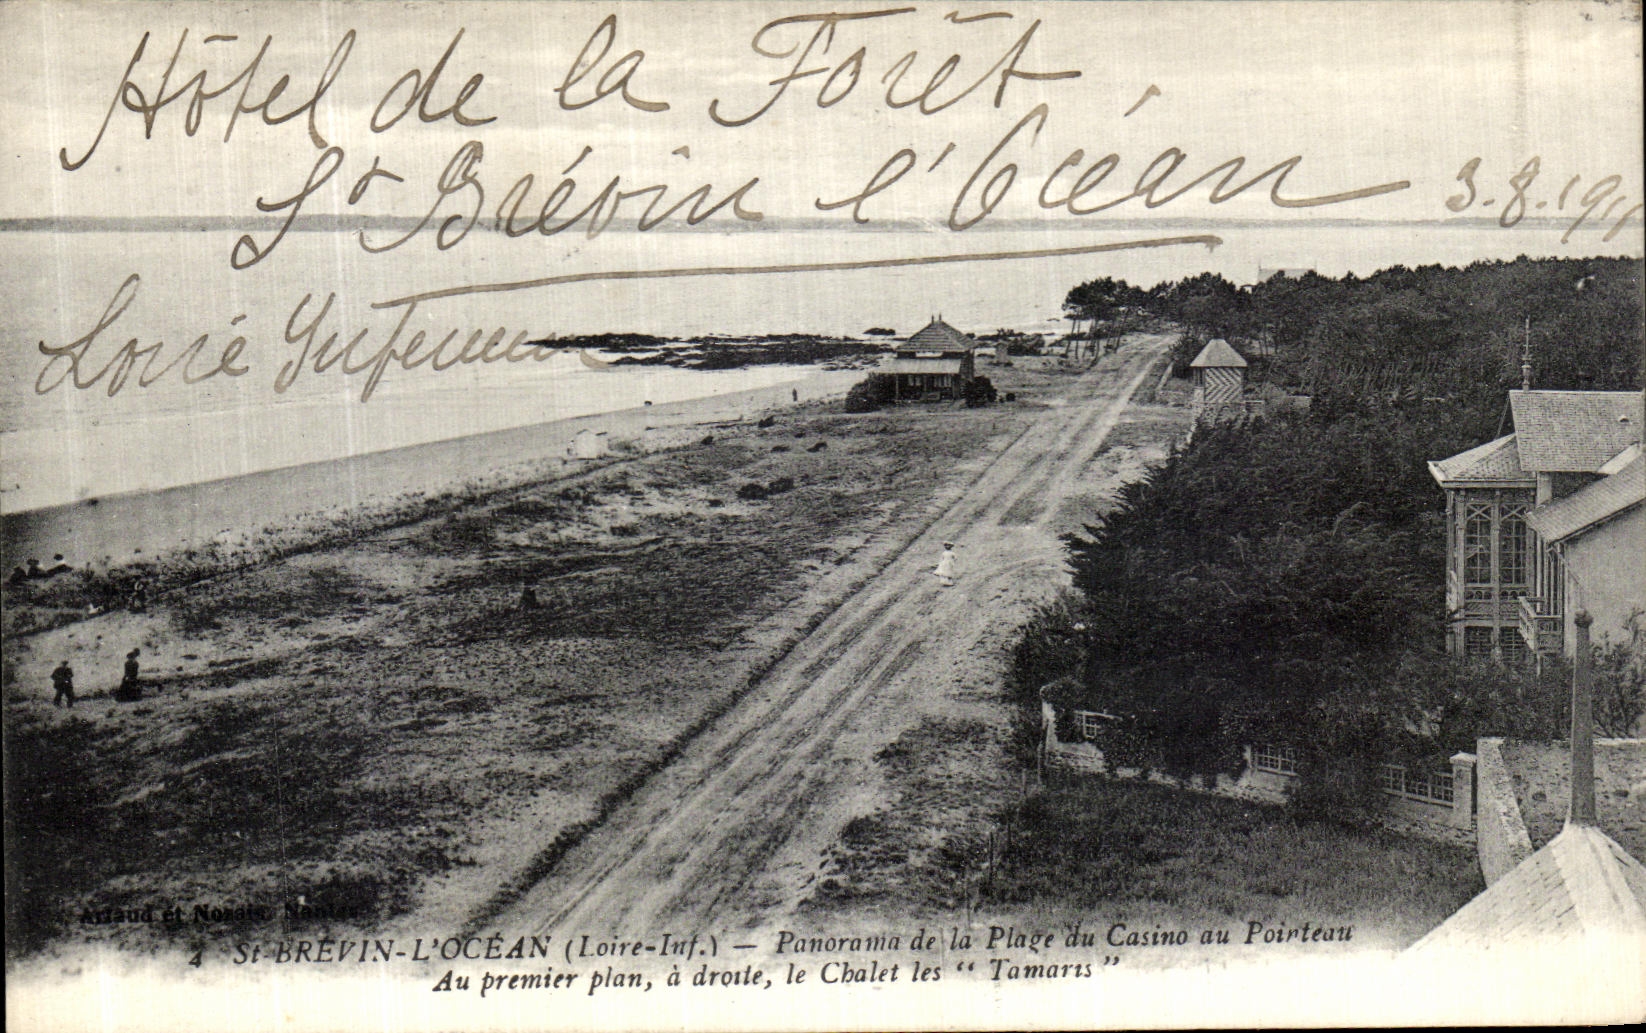 Hôtel de la Forêt,
St Brévin l'Océan
3.8.19
Loire Inférieure
Artaud et Nozais, Nantes
4 St-BRÉVIN-L'OCÉAN (Loire-Inf.) — Panorama de la Plage du Casino au Pointeau
Au premier plan, à droite, le Chalet les “ Tamaris ”